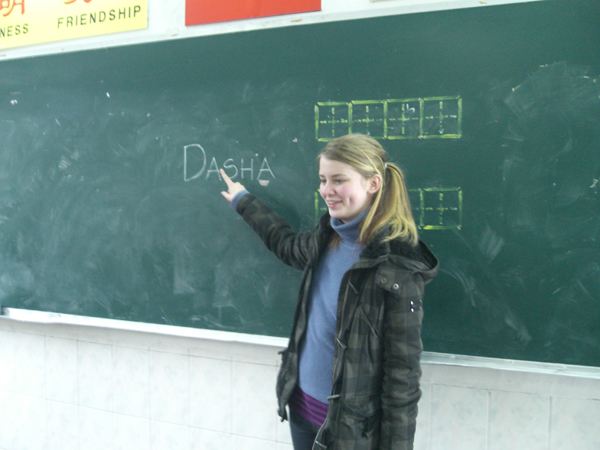 NESS FRIENDSHIP
DASHA